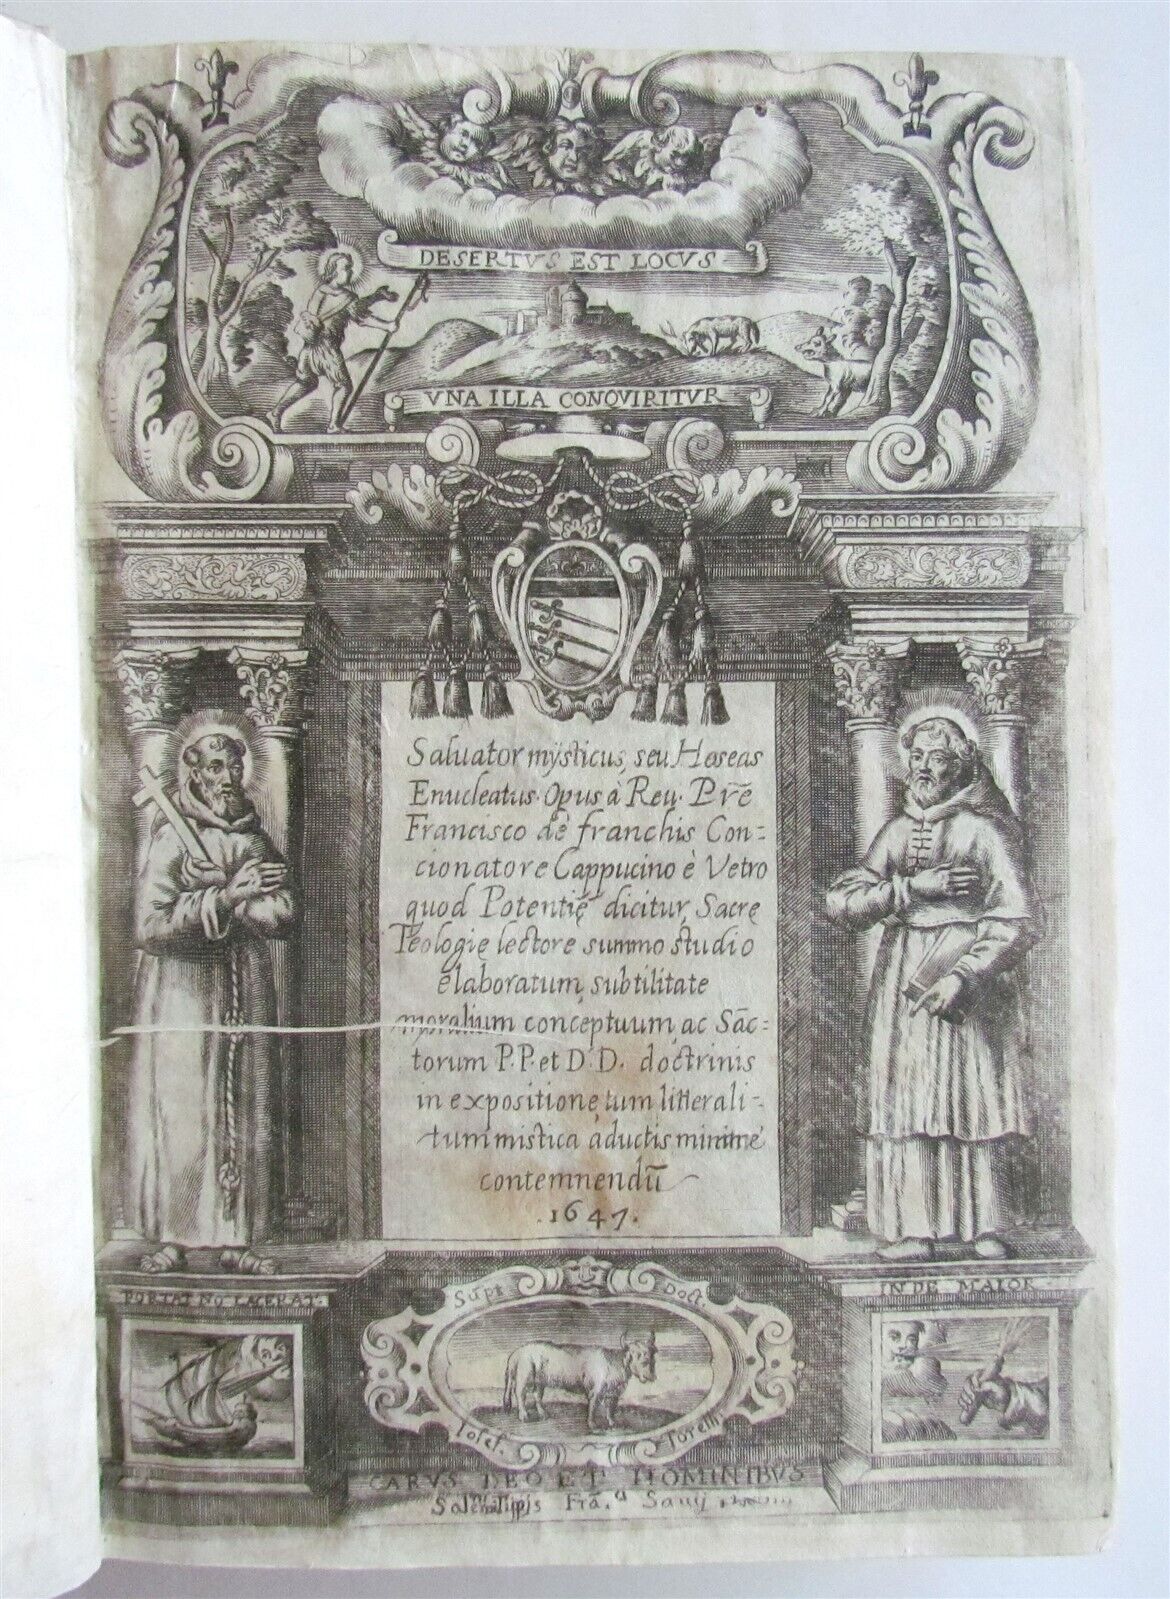 DESERTVS EST LOCVS
VNA ILLA CONQVIRITVR
Saluator mÿsticus, seu Hoseas
Enucleatus. Opus à Reu. Prẽ
Francisco de franchis Con-
cionatore Cappucino è Vetro
quod Potentię dicitur, Sacrę
Teologię lectore summo studio
elaboratum, subtilitate
moralium conceptuum, ac Sãc-
torum P.P. et D.D. doctrinis
in expositione, tum litterali-
tum mistica aductis minime
contemnendũ
.1647.
PORTAT NO LACERAT.
INDE MAIOR
Supr Doct.
Iosef. Torelli
CARVS DEO ET HOMINIBVS